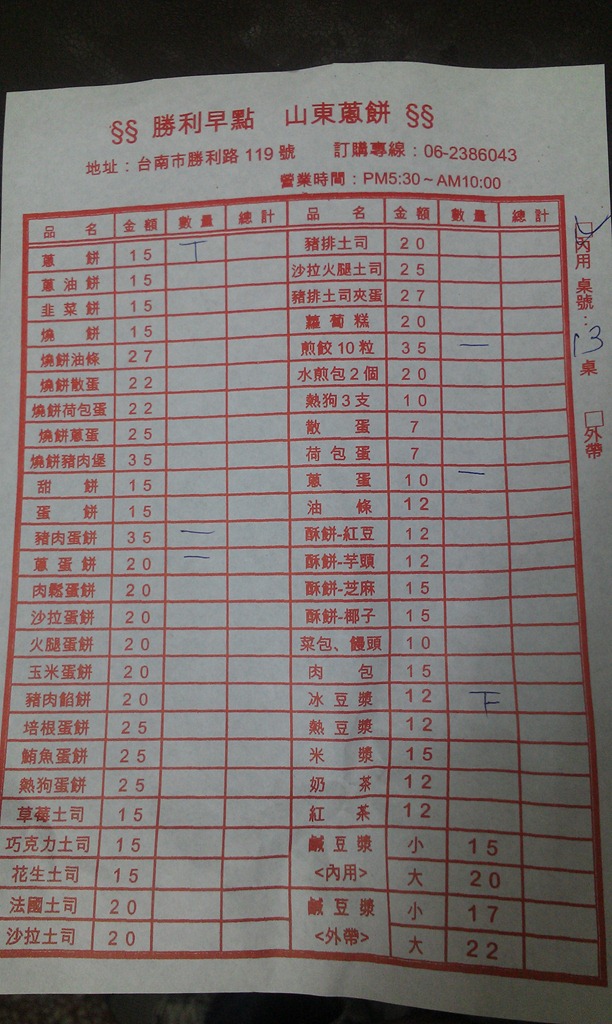 §§ 勝利早點 山東蔥餅 §§
地址：台南市勝利路 119 號 訂購專線：06-2386043
營業時間：PM5:30～AM10:00
品名 金額 數量 總計 品名 金額 數量 總計
蔥餅 15 T 豬排土司 20
蔥油餅 15 沙拉火腿土司 25
韭菜餅 15 豬排土司夾蛋 27
燒餅 15 蘿蔔糕 20
燒餅油條 27 煎餃10粒 35 一
燒餅散蛋 22 水煎包2個 20
燒餅荷包蛋 22 熱狗3支 10
燒餅蔥蛋 25 散蛋 7
燒餅豬肉堡 35 荷包蛋 7
甜餅 15 蔥蛋 10 一
蛋餅 15 油條 12
豬肉蛋餅 35 一 酥餅-紅豆 12
蔥蛋餅 20 一 酥餅-芋頭 12
肉鬆蛋餅 20 酥餅-芝麻 15
沙拉蛋餅 20 酥餅-椰子 15
火腿蛋餅 20 菜包、饅頭 10
玉米蛋餅 20 肉包 15
豬肉餡餅 20 冰豆漿 12 下
培根蛋餅 25 熱豆漿 12
鮪魚蛋餅 25 米漿 15
熱狗蛋餅 25 奶茶 12
草莓土司 15 紅茶 12
巧克力土司 15 鹹豆漿 小 15
花生土司 15 <內用> 大 20
法國土司 20 鹹豆漿 小 17
沙拉土司 20 <外帶> 大 22
內用 桌號：13 桌
外帶